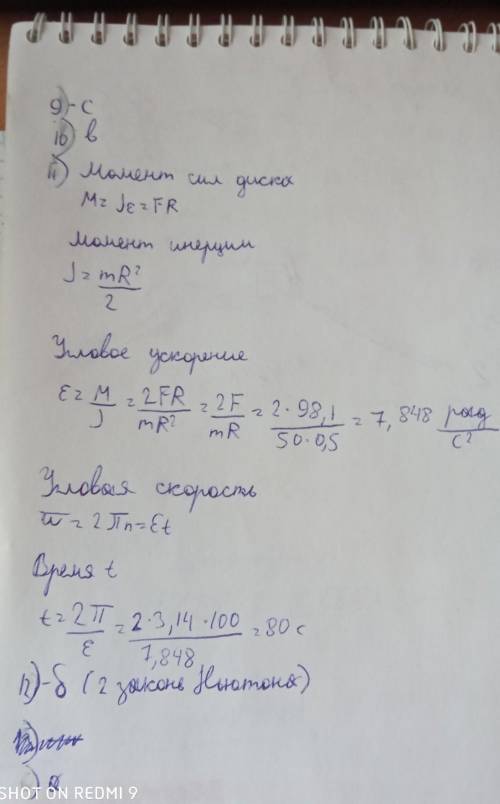 9)-с
10) в
11) Момент сил диска
M = Jε = FR
Момент инерции
J = mR²/2
Угловое ускорение
ε = M/J = 2FR/mR² = 2F/mR = 2·98,1/50·0,5 = 7,848 рад/с²
Угловая скорость
ω = 2πn = εt
Время t
t = 2π/ε = 2·3,14·100/7,848 = 80 с
12)-б (2 закон Ньютона)
SHOT ON REDMI 9